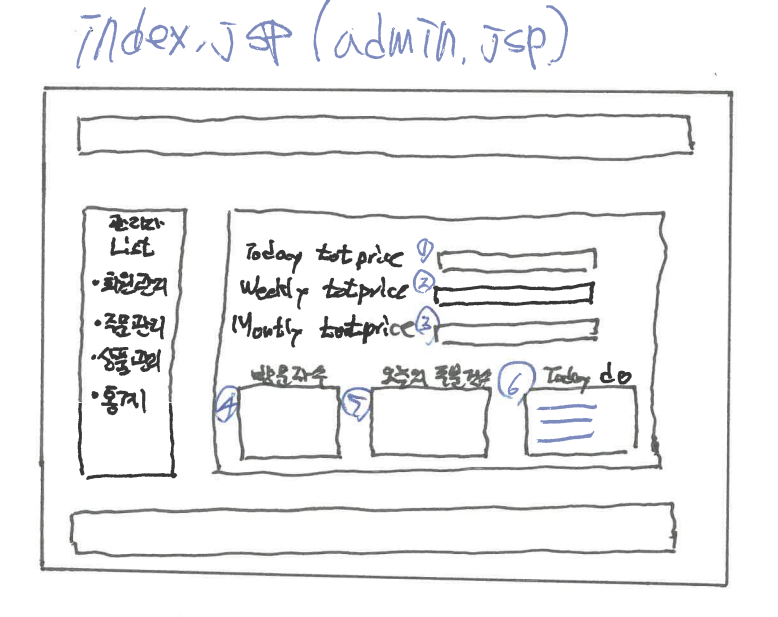 index.jsp (admin.jsp)
관리자
List
·회원관리
·주문관리
·상품관리
·통계
Today totprice ①
Weekly totprice ②
Montly totprice ③
방문자수
오늘의 주문건수
Today do
④
⑤
⑥